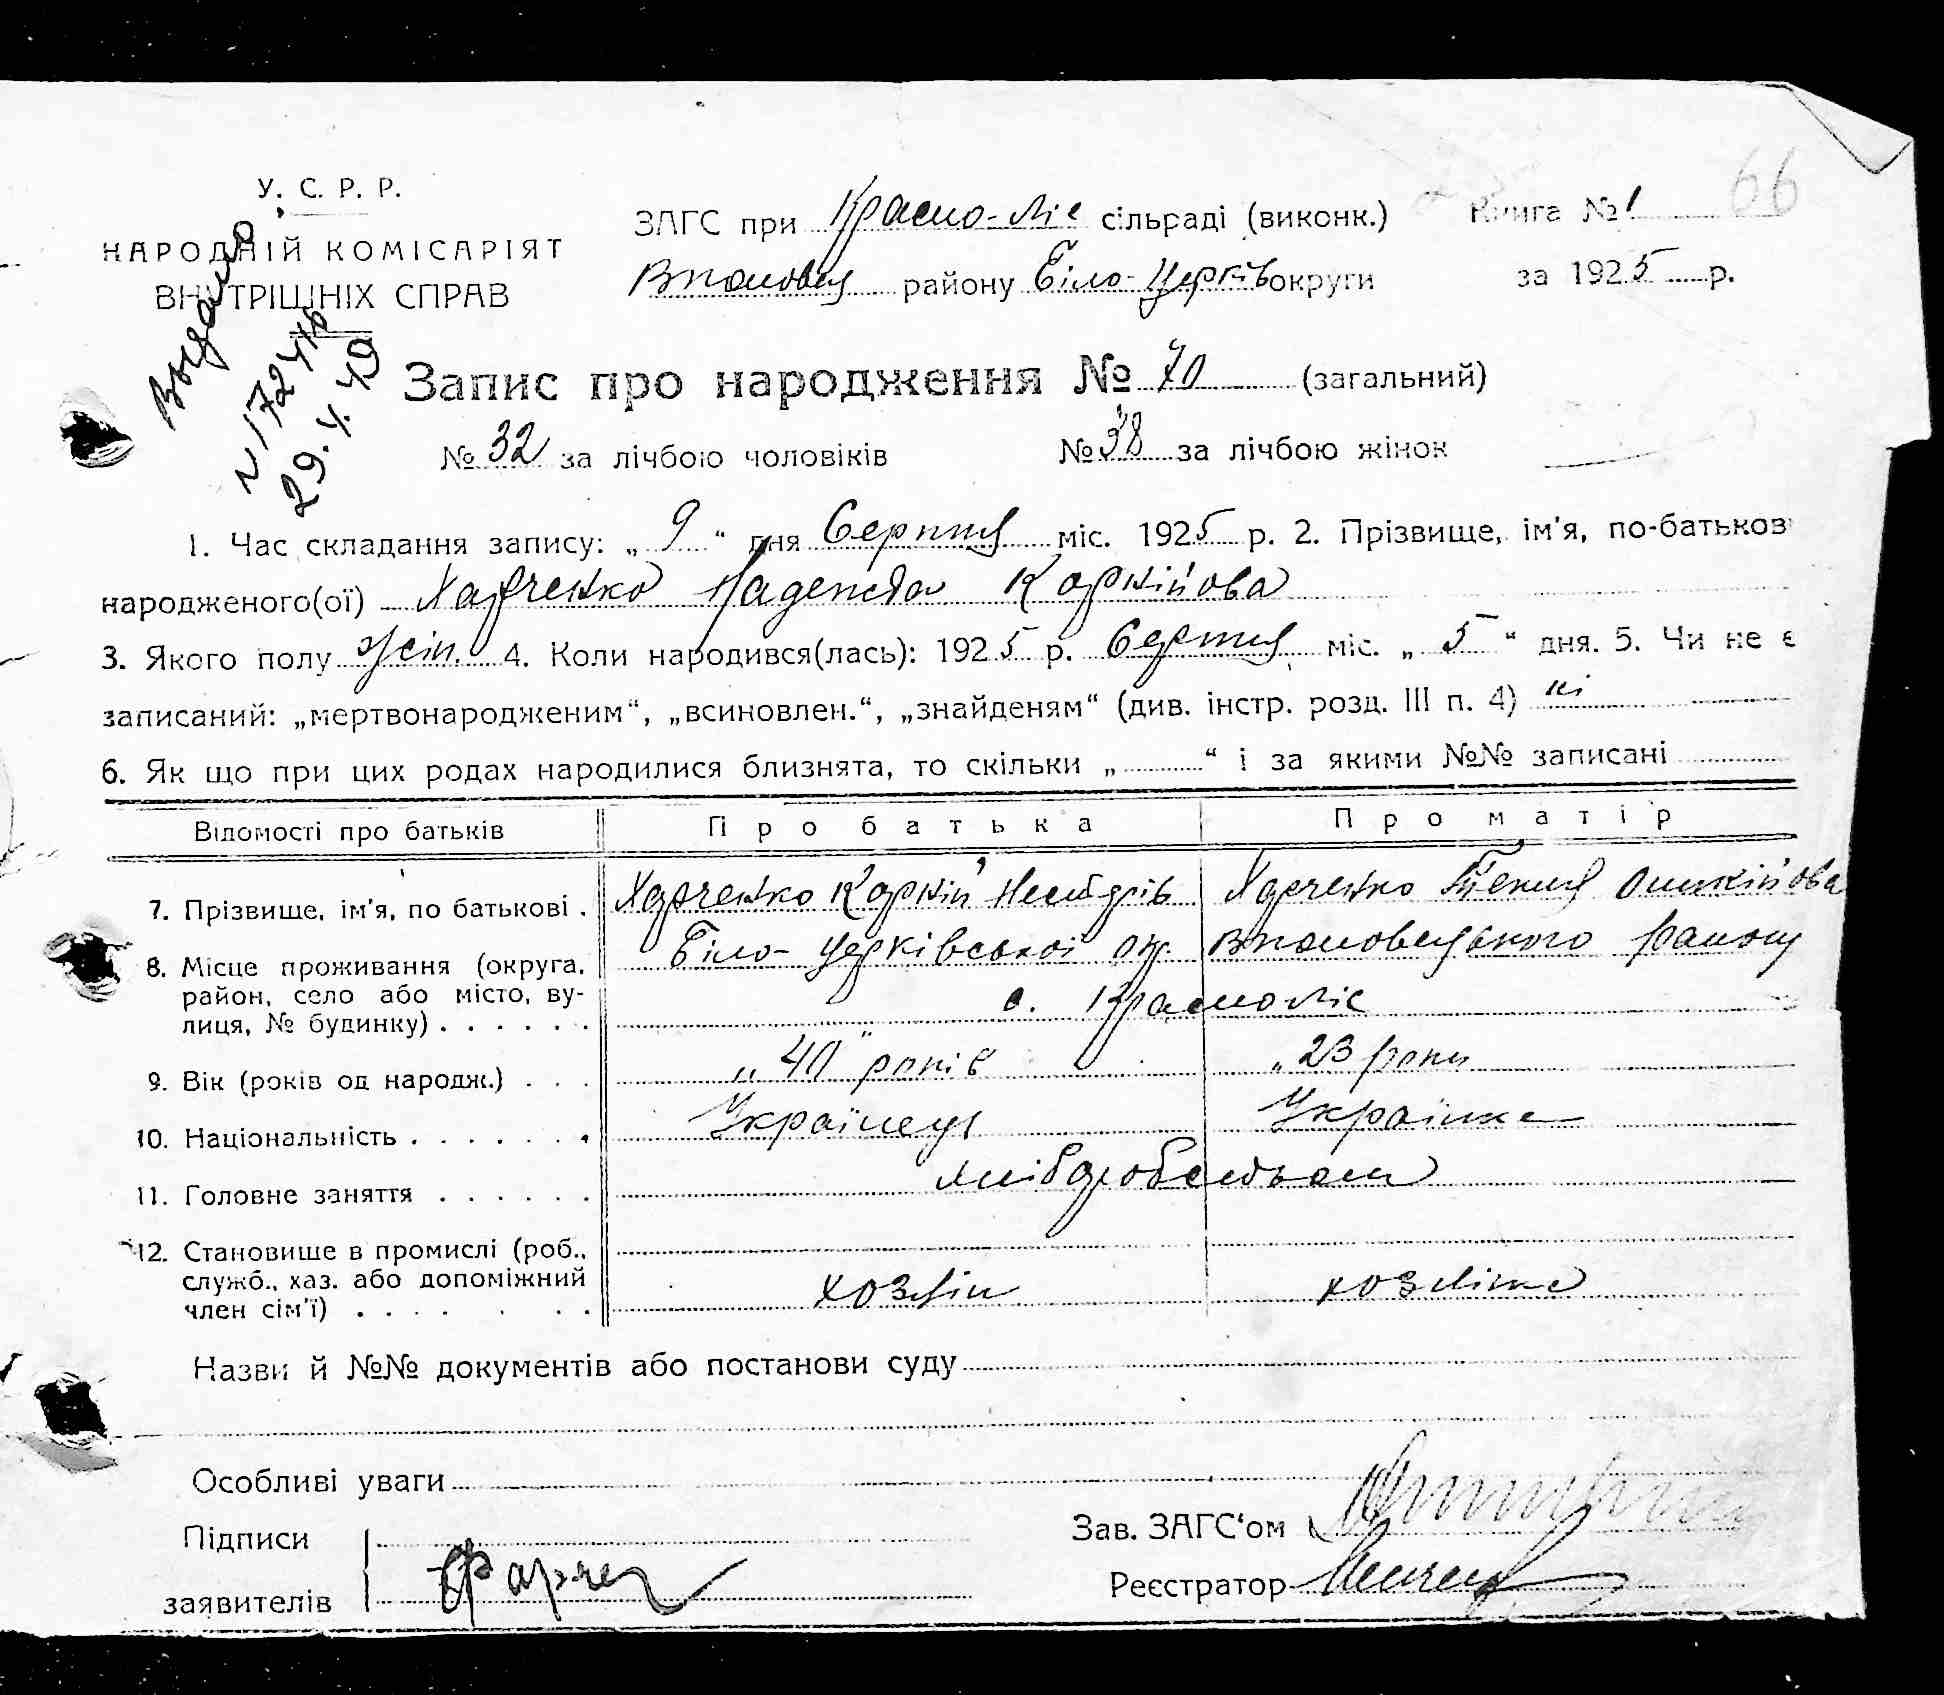 66
У. С. Р. Р.
НАРОДНІЙ КОМІСАРІЯТ
ВНУТРІШНІХ СПРАВ
Выдано
N 172416
29. 4. 49
ЗАГС при Красно-Ліс сільраді (виконк.) Книга № 1
району Біло-Церків округи за 1925 р.
Запис про народження № 70 (загальний)
№ 32 за лічбою чоловіків № 38 за лічбою жінок
1. Час складання запису: „ 9 “ дня Серпня міс. 1925 р. 2. Прізвище, ім'я, по-батьков
народженого(ої) Харченко Надежда Коркійова
3. Якого полу жін. 4. Коли народився(лась): 1925 р. Серпня міс. „ 5 “ дня. 5. Чи не є
записаний: „мертвонародженим“, „всиновлен.“, „знайденям“ (див. інстр. розд. III п. 4) ні
6. Як що при цих родах народилися близнята, то скільки „ “ і за якими №№ записані
Відомості про батьків Про батька Про матір
7. Прізвище, ім'я, по батькові . Харченко Коркій Нестерів Харченко Текля
8. Місце проживання (округа, Біло-Церківської окр. району
район, село або місто, ву- с. Красноліс
лиця, № будинку) . . . . . .
9. Вік (років од народж.) . . . „40" років „23 роки
10. Національність . . . . . . . Українець Українка
11. Головне заняття . . . . . . хліборобством
12. Становище в промислі (роб.,
служб., хаз. або допоміжний хозяін хозяіка
член сім'ї) . . . . . . .
Назви й №№ документів або постанови суду
Особливі уваги
Підписи Зав. ЗАГС'ом
заявителів Реєстратор